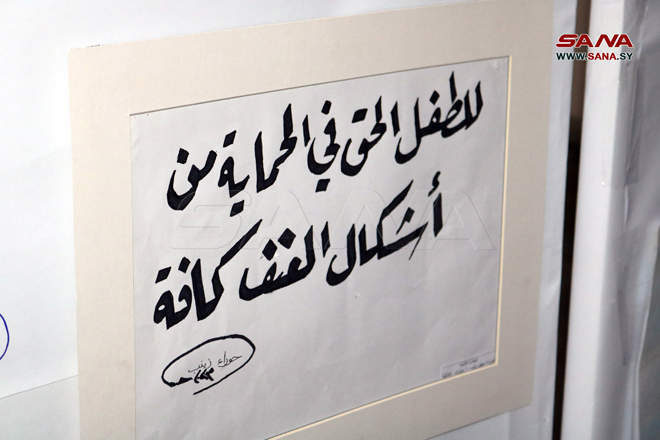 SANA
WWW.SANA.SY
للطفل الحق في الحماية من
أشكال العنف كافة
SANA
زينب